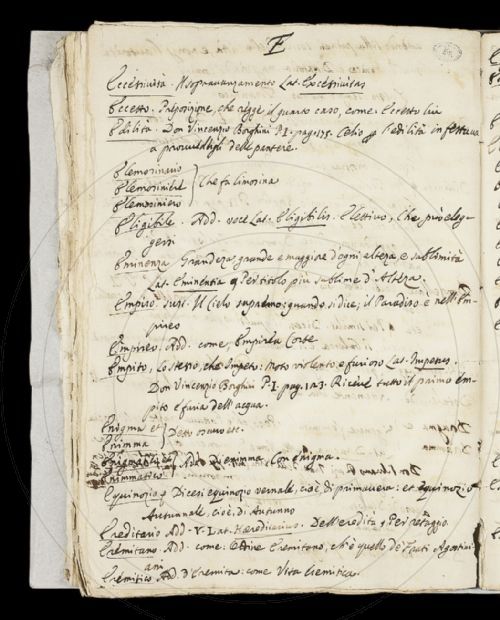 E
Eccessività. Il sopravanzamento Lat. Excessivitas
Eccetto. Preposizione, che regge il quarto caso, come: Eccetto lui
Edilità. Don Vincenzio Borghini P.I. pag. 175. Celio per l'edilità in festava
a provvedergli delle pantere.
Elemosinario
Elemosiniere } Che fa limosina
Elemosiniero
Eligibile. Add. voce Lat. Eligibilis. Elettivo, Che può eleg-
gersi
Eminenza Grandezza grande e maggiore d'ogni altezza e sublimità
Lat. Eminentia Per titolo più sublime d'Altezza.
Empireo. sust. Il Cielo supremo: quando si dice; il Paradiso è nell'Em-
pireo
Empireo. Add. come, Empirea Corte
Empito, lo stesso, che Impeto: Moto violento e furioso Lat. Impetus.
Don Vincenzio Borghini P.I. pag. 123. Riceve tutto il primo em-
pito e furia dell'acqua.
Enigma et
Enimma } Detto oscuro etc.
Enigmatico et
Enimmatico } Add. D'enimma, Con enigma.
Equinozio Dicesi equinozio vernale, cioè di primavera: et equinozio
Autunnale, cioè, di Autunno
Ereditario Add. V. Lat. Haereditarius. Dell'eredità Per retaggio.
Eremitano Add. come: Ordine Eremitano, ch'è quello de' Frati Agostini-
ani
Eremitico Add. d'Eremita: come Vita Eremitica.